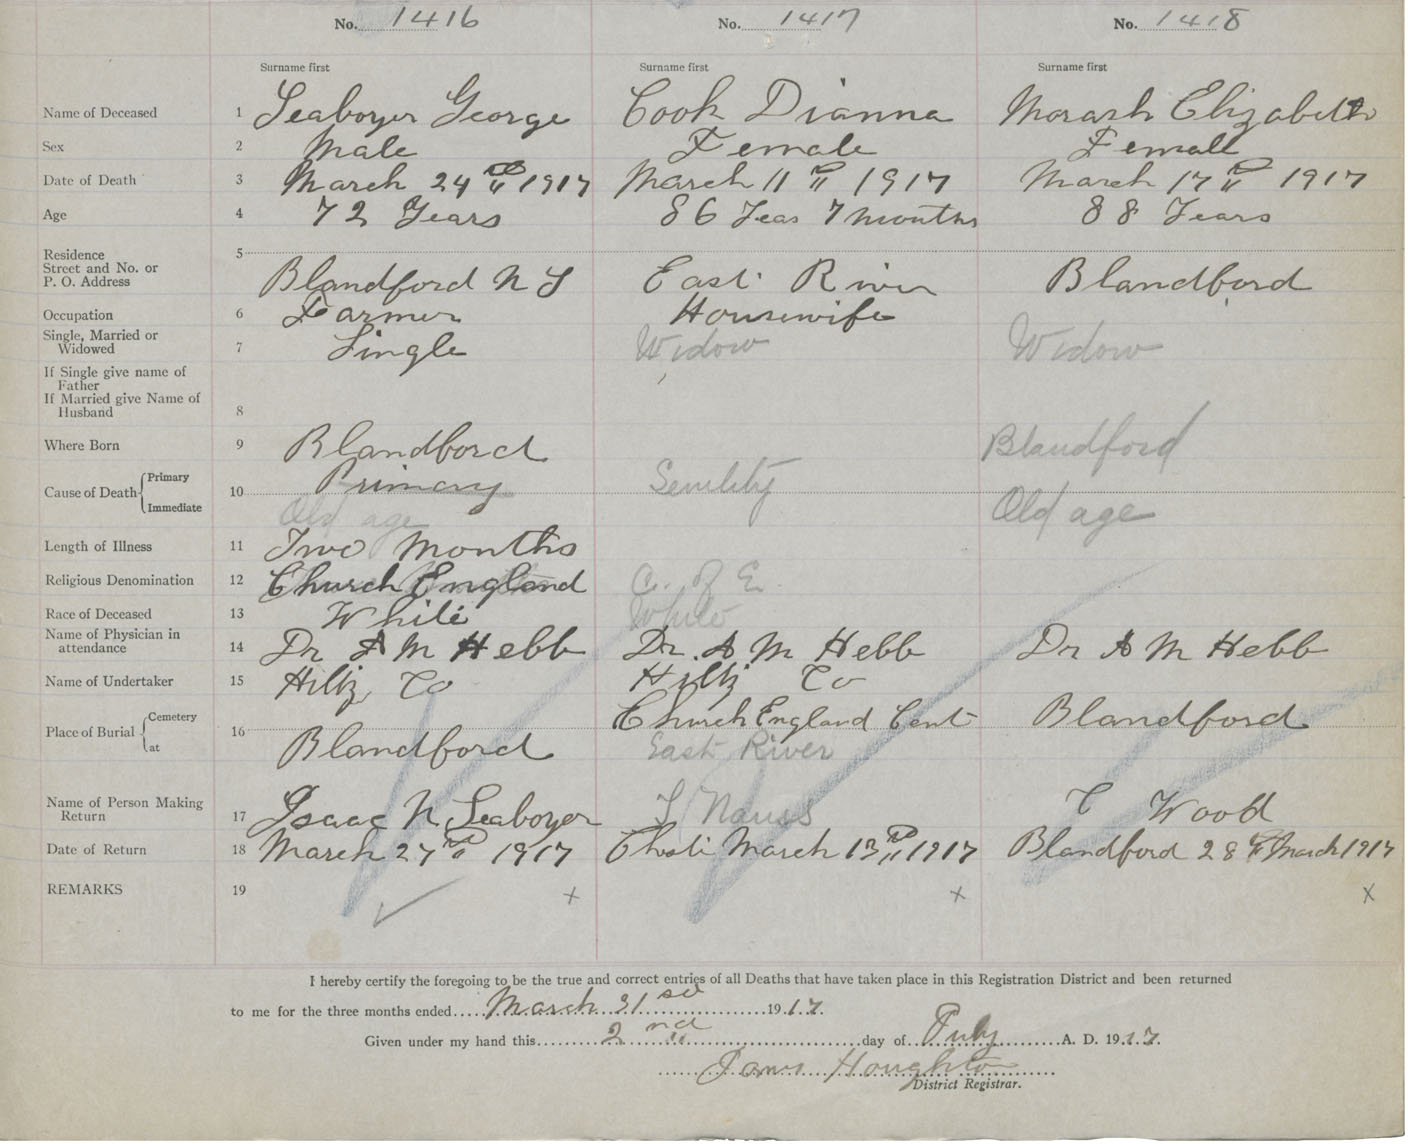 No. 1416 No. 1417 No. 1418
Surname first Surname first Surname first
Name of Deceased 1 Seaboyer George Cook Dianna Morash Elizabeth
Sex 2 Male Female Female
Date of Death 3 March 24th 1917 March 11th 1917 March 17th 1917
Age 4 72 Years 86 Yeas 7 months 88 Years
Residence
Street and No. or
P. O. Address 5 Blandford N S East River Blandford
Occupation 6 Farmer Housewife
Single, Married or
Widowed 7 Single Widow Widow
If Single give name of
Father
If Married give Name of
Husband 8
Where Born 9 Blandford Blandford
Cause of Death Primary Immediate 10 Primary Senility
Old age Old age
Length of Illness 11 Two Months
Religious Denomination 12 Church England C. of E
Race of Deceased 13 White White
Name of Physician in
attendance 14 Dr A M Hebb Dr. A M Hebb Dr A M Hebb
Name of Undertaker 15 Hiltz Co Hiltz Co
Place of Burial Cemetery at 16 Church England Cent Blandford
Blandford East River
Name of Person Making
Return 17 Isaac N Seaboyer Nauss C Wood
Date of Return 18 March 27th 1917 March 13th 1917 Blandford 28th March 1917
REMARKS 19 x x x
I hereby certify the foregoing to be the true and correct entries of all Deaths that have taken place in this Registration District and been returned
to me for the three months ended March 31st 1917.
Given under my hand this 2nd day of July A. D. 1917.
James Houghton
District Registrar.